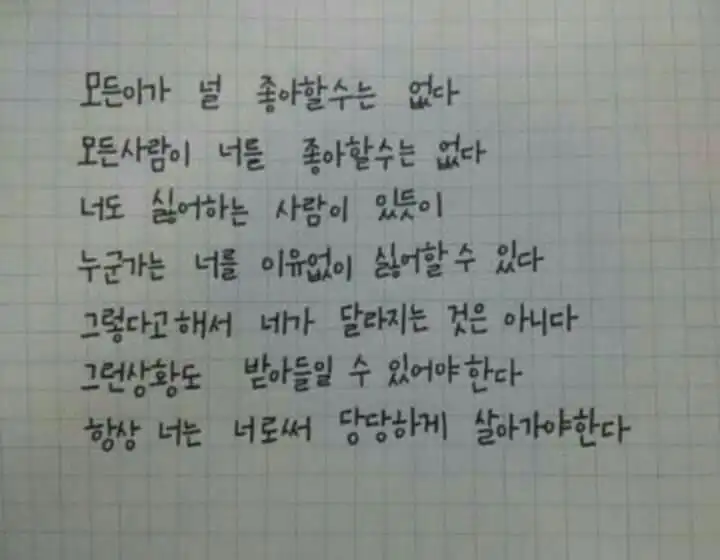 모든이가 널 좋아할수는 없다
모든사람이 너를 좋아할수는 없다
너도 싫어하는 사람이 있듯이
누군가는 너를 이유없이 싫어할 수 있다
그렇다고해서 네가 달라지는 것은 아니다
그런상황도 받아들일 수 있어야한다
항상 너는 너로써 당당하게 살아가야한다